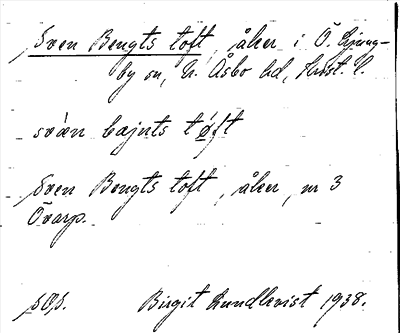 Sven Bengts toft, åker i Ö. Ljung-
by sn, N. Åsbo hd, Krist. l.
svæ̀n bæjnts tø̀ft
Sven Bengts toft, åker, nr 3
Övarp.
Birgit Lundkvist 1938.